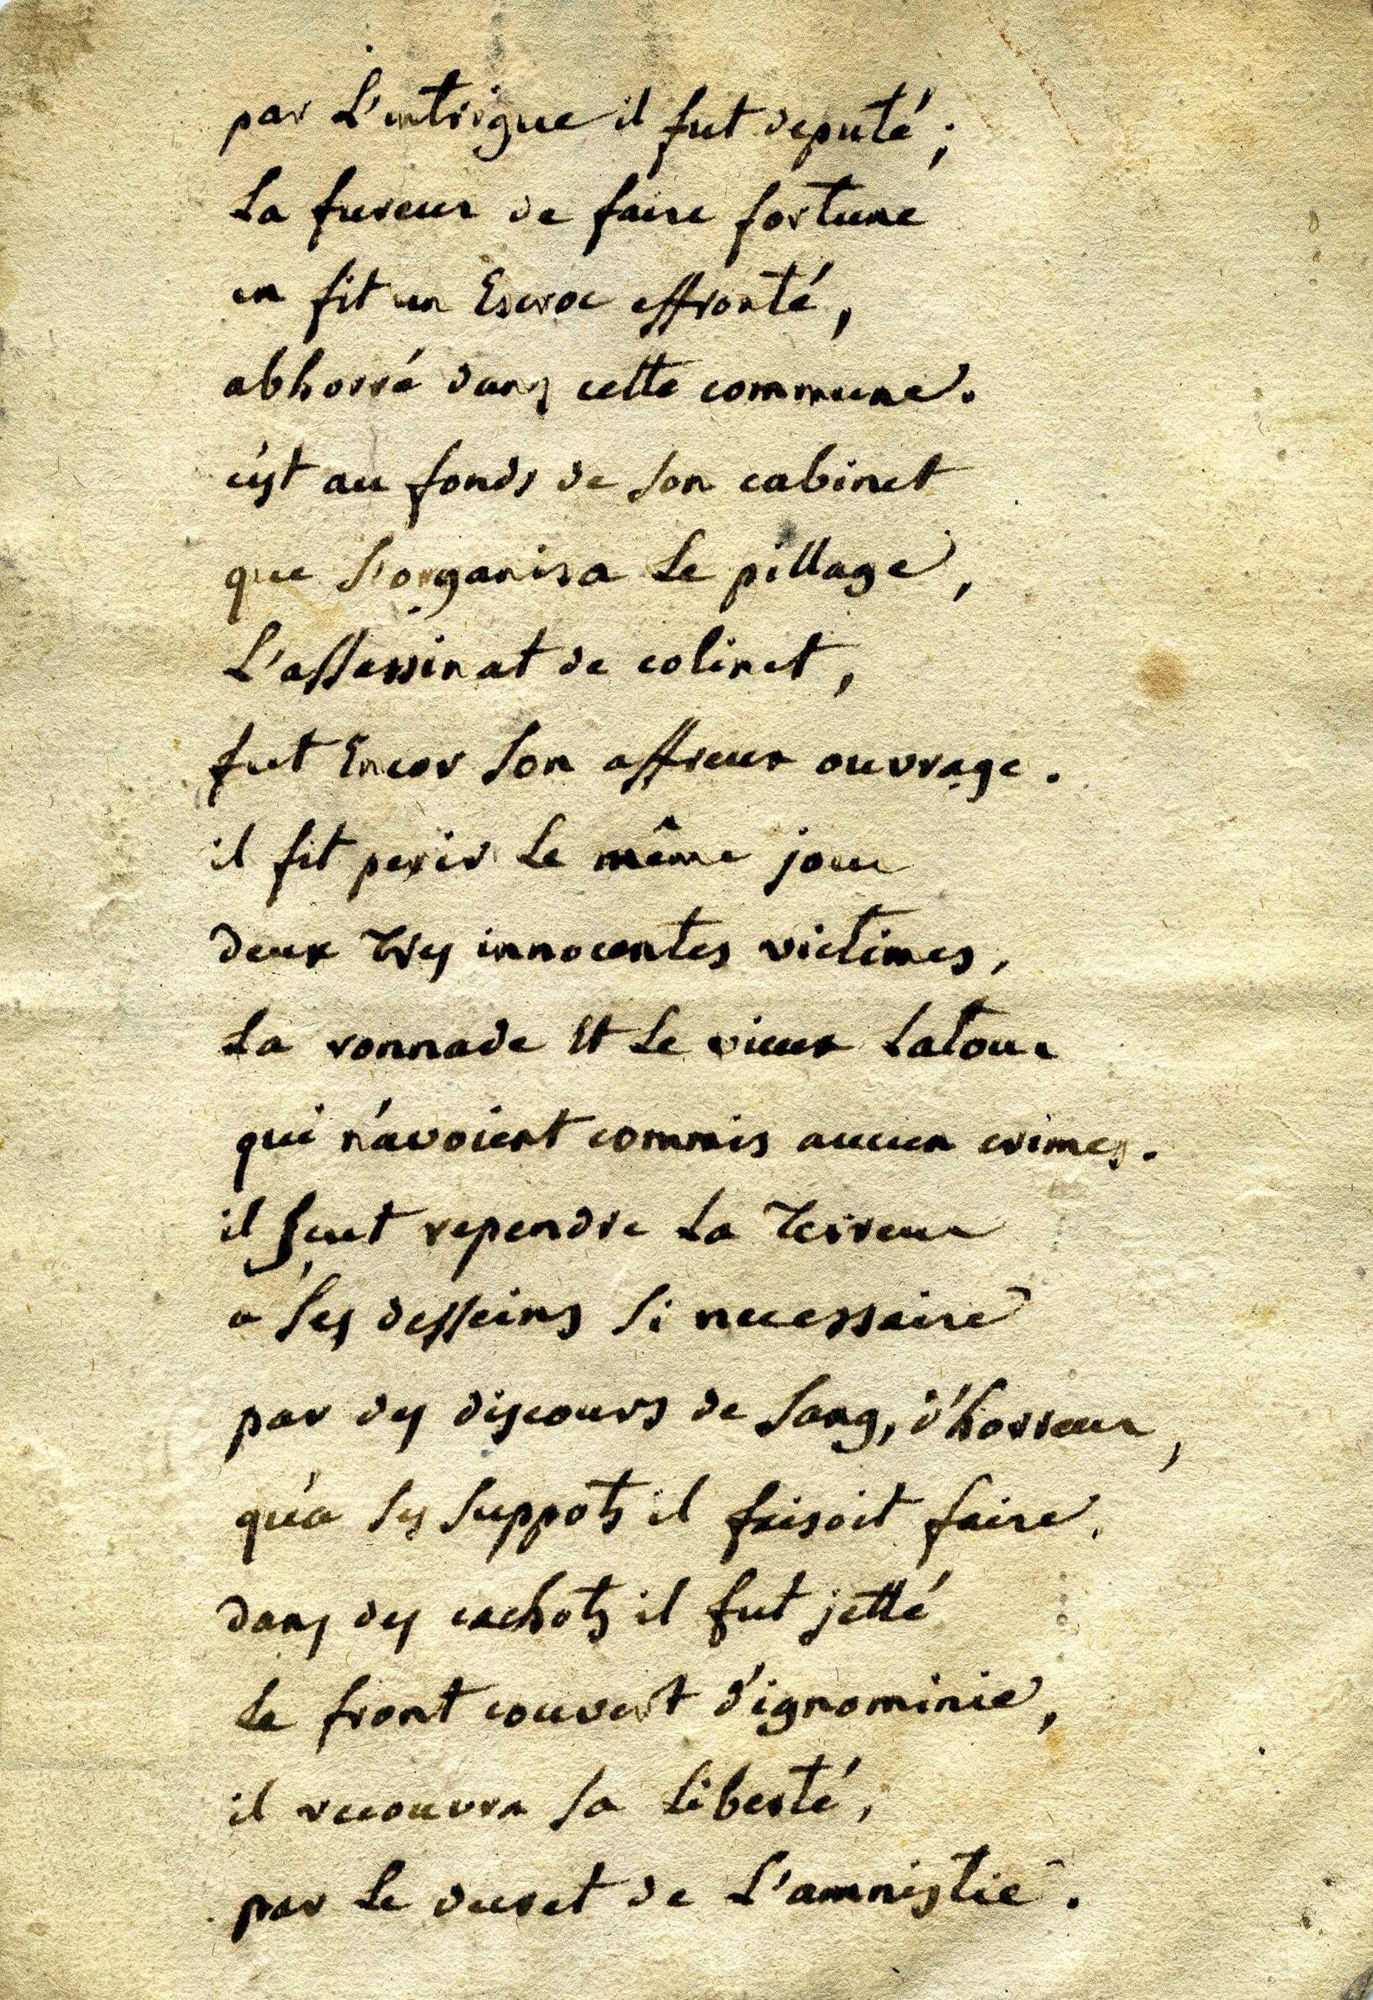 par L'intrigue il fut deputé ;
La fureur de faire fortune
en fit un Escroc effronté,
abhorré dans cette commune.
c'est au fonds de son cabinet
que s'organisa Le pillage,
L'assassinat de colinet,
fut Encor son affreux ouvrage.
il fit perir Le même jour
deux tres innocentes victimes,
La ronnade Et Le vieux Latour
qui n'avoient commis aucun crimes.
il sçut rependre La terreur
a ses desseins si necessaire
par des discours de sang, d'horreur,
qu'a ses suppots il faisoit faire.
dans des cachots il fut jetté
Le front couvert d'ignominie,
il recouvra sa Liberté,
par Le decret de L'amnistie.